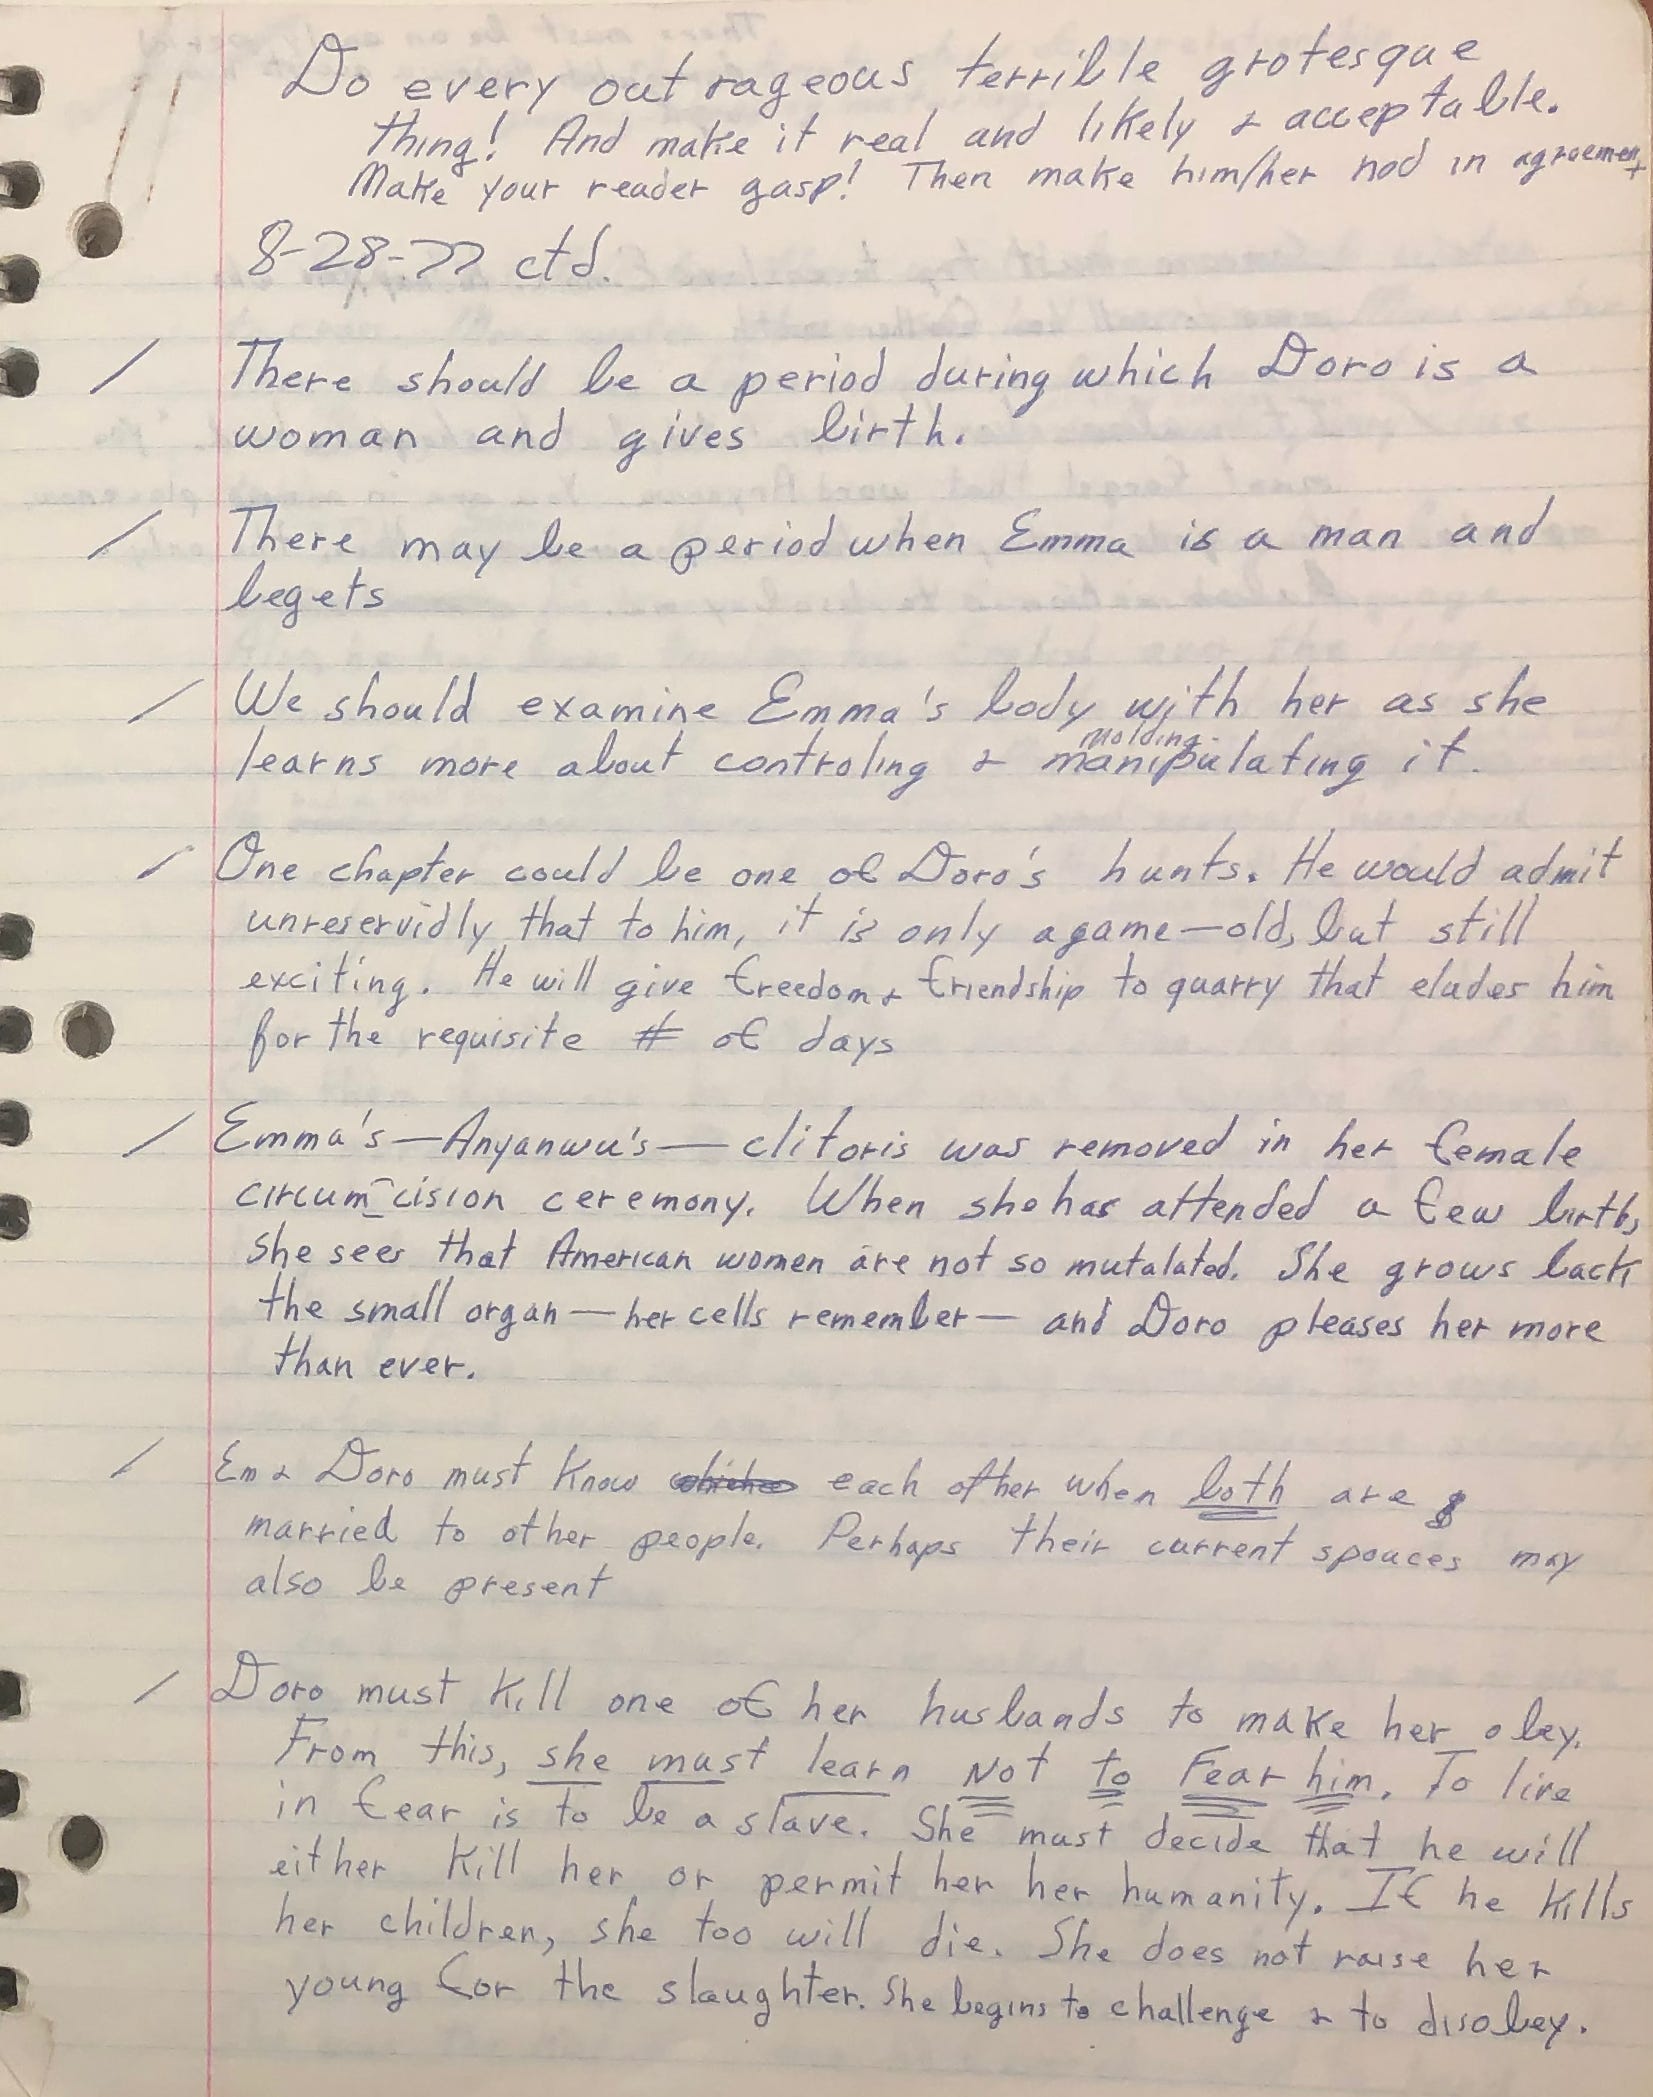 Do every outrageous terrible grotesque
thing! And make it real and likely & acceptable.
Make your reader gasp! Then make him/her nod in agreement
8-28-77 ctd.
/ There should be a period during which Doro is a
woman and gives birth.
/ There may be a period when Emma is a man and
begets
/ We should examine Emma's body with her as she
molding
learns more about controling & manipulating it.
/ One chapter could be one of Doro's hunts. He would admit
unreservidly that to him, it is only a game—old, but still
exciting. He will give freedom & friendship to quarry that eludes him
for the requisite # of days
/ Emma's—Anyanwu's—clitoris was removed in her female
circumcision ceremony. When she has attended a few births,
she sees that American women are not so mutalated. She grows back
the small organ—her cells remember—and Doro pleases her more
than ever.
/ Em & Doro must know each other when both are
married to other people. Perhaps their current spouces may
also be present
/ Doro must kill one of her husbands to make her obey.
From this, she must learn Not to Fear him. To live
in fear is to be a slave. She must decide that he will
either kill her or permit her her humanity. If he kills
her children, she too will die. She does not raise her
young for the slaughter. She begins to challenge & to disobey.